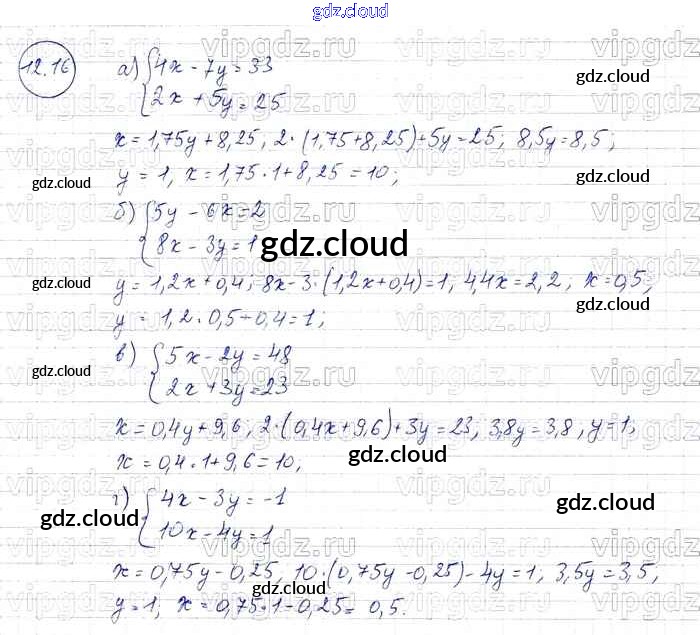 gdz.cloud
12.16
а) {4x - 7y = 33
{2x + 5y = 25
gdz.cloud
x = 1,75y + 8,25; 2·(1,75+8,25)+5y=25; 8,5y=8,5;
y = 1, x = 1,75·1+8,25 = 10;
gdz.cloud
gdz.cloud
б) {5y - 6x = 2
{8x - 3y = 1
gdz.cloud
gdz.cloud
y = 1,2x + 0,4; 8x - 3·(1,2x+0,4)=1, 4,4x = 2,2; x = 0,5;
gdz.cloud
gdz.cloud
y = 1,2·0,5+0,4=1;
в) {5x - 2y = 48
{2x + 3y = 23
gdz.cloud
x = 0,4y + 9,6, 2·(0,4x+9,6)+3y=23, 3,8y=3,8, y=1;
x = 0,4·1+9,6=10,
gdz.cloud
г) {4x - 3y = -1
{10x - 4y = 1
gdz.cloud
gdz.cloud
x = 0,75y - 0,25, 10·(0,75y-0,25)-4y=1, 3,5y=3,5,
gdz.cloud
gdz.cloud
y = 1; x = 0,75·1-0,25= 0,5.
vipgdz.ru